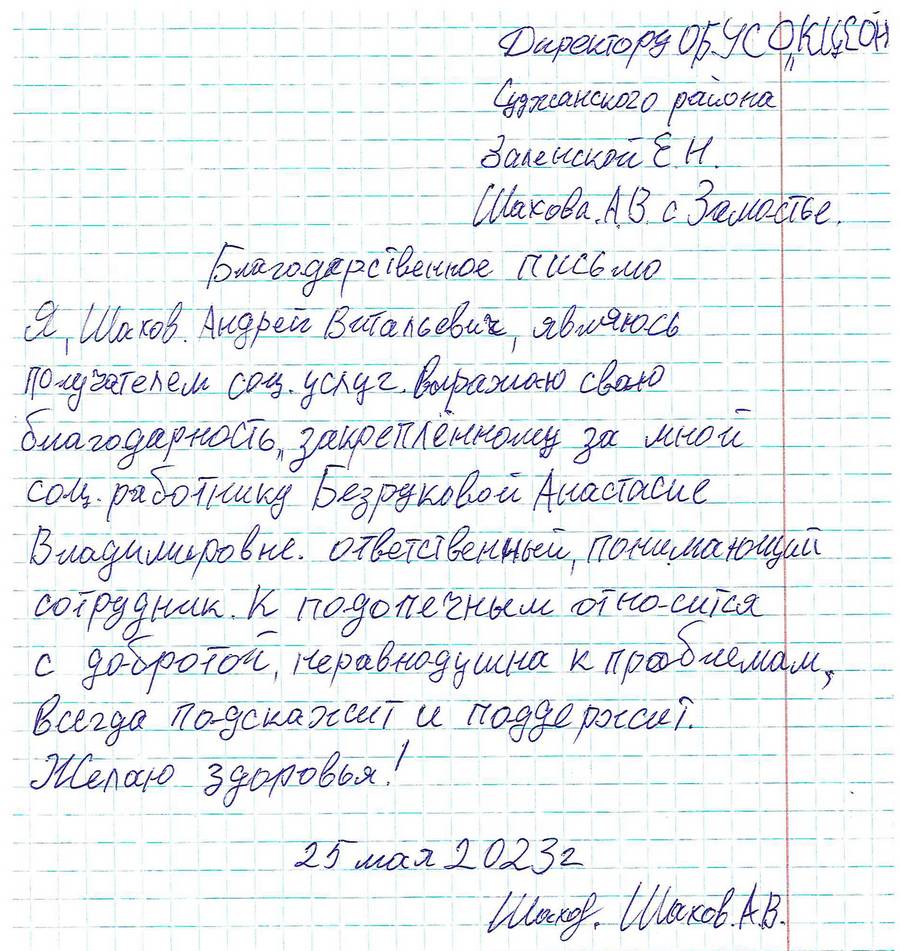 Директору ОБУСО „КЦСОН
Суджанского района
Заленской Е.Н.
Шахова.А.В. с Замостье.
Благодарственное письмо
Я, Шахов. Андрей Витальевич, являюсь
получателем соц. услуг. Выражаю сваю
благодарность, закреплённому за мной
соц. работнику Безруковой Анастасие
Владимировне. ответственный, понимающий
сотрудник. К подопечным относится
с добротой, неравнодушна к проблемам,
всегда подскажит и поддержит.
Желаю здоровья!
25 мая 2023г
Шахов. Шахов.А.В.